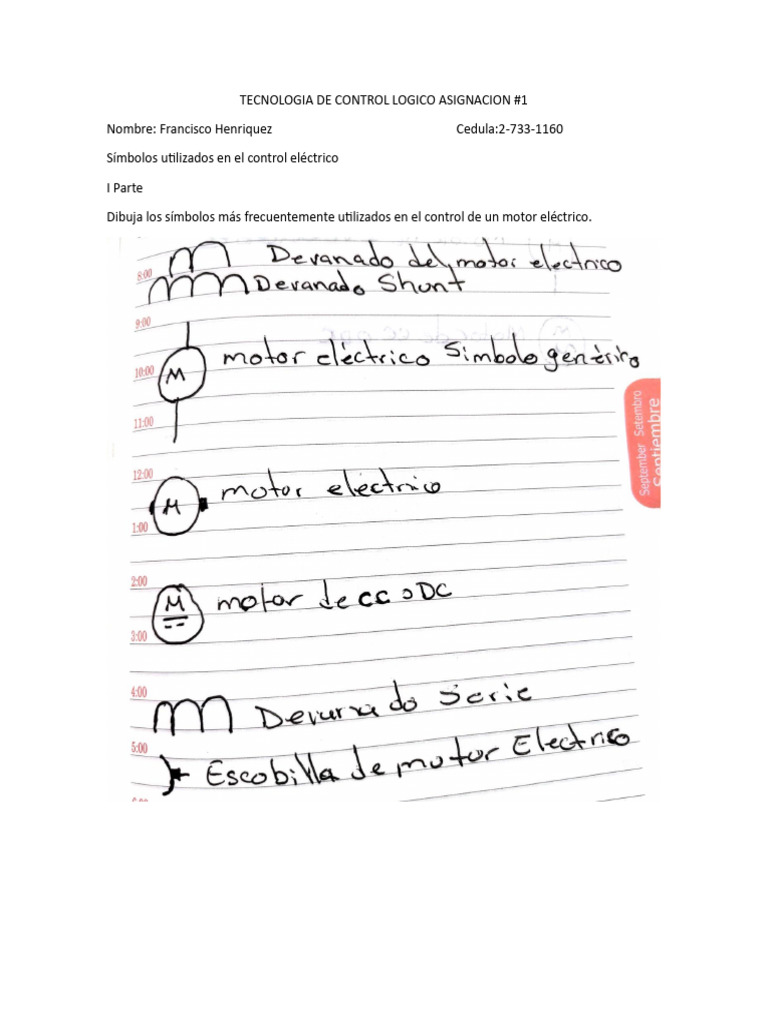 TECNOLOGIA DE CONTROL LOGICO ASIGNACION #1
Nombre: Francisco Henriquez Cedula:2-733-1160
Símbolos utilizados en el control eléctrico
I Parte
Dibuja los símbolos más frecuentemente utilizados en el control de un motor eléctrico.
8:00 Devanado del motor electrico
Devanado Shunt
9:00
10:00 M motor eléctrico Simbolo genérico
11:00
September Setembro
Septiembre
12:00
M motor eléctrico
1:00
2:00
M motor de cc o DC
3:00
4:00
Devanado Serie
5:00
Escobilla de motor Electrico